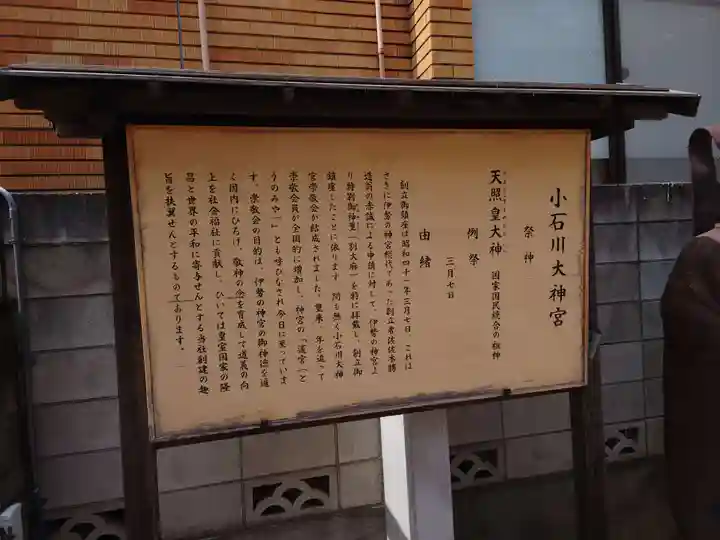 小石川大神宮
祭神
天照皇大神 国家国民統合の祖神
例祭
三月七日
由緒
創立御鎮座は昭和四十一年三月七日、これは
さきに伊勢の神宮総代であった創立者佐佐木勝
造翁の赤誠による申請に対して、伊勢の神宮よ
り特別御神璽(別大麻)を特に拝戴し、創立御
鎮座したことに依ります。間も無く小石川大神
宮崇敬会が結成されました。爾来、年を追って
崇敬会員が全国的に増加し、神宮の「遥宮(と
うのみや)」とも呼びなされ今日に至っていま
す。崇敬会の目的は、伊勢の神宮の御神徳を遍
く国内にひろげ、敬神の念を育成して道義の向
上を社会福祉に貢献し、ひいては皇室国家の隆
昌と世界の平和に寄与せんとする当社創建の趣
旨を扶翼せんとするものであります。